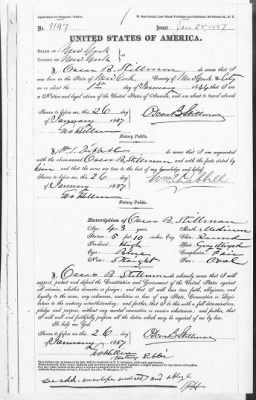 No. 9147 Issued Jan 28 1887
UNITED STATES OF AMERICA.
STATE OF New York
COUNTY OF New York
I, Oscar B. Stillman do swear that I
was born in the State of New York County of New York & City
on or about the 1st day of January 1844 that I am
a Native and loyal citizen of the United States of America, and am about to travel abroad
Sworn to before me this 26
day of January 1887
Oscar B Stillman
Notary Public.
do swear that I am
acquainted with the above-named Oscar B. Stillman, and with the facts stated by
him, and that the same are true to the best of my knowledge and belief.
Sworn to before me this 26
day of January 1887
Notary Public.
Description of Oscar B. Stillman
Age: 43 years
Mouth: Medium
Stature: 5 ft 10 inches, Eng.
Chin: Round
Forehead: High
Hair: Gray Mixed
Eyes: Blue
Complexion: Fair
Nose: Straight
Face: Oval
I, Oscar B Stillman do solemnly swear that I will
support, protect and defend the Constitution and Government of the United States against
all enemies, whether domestic or foreign; and that I will bear true faith, allegiance, and
loyalty to the same, any ordinance, resolution or law of any State, Convention or Legislature
to the contrary notwithstanding; and further, that I do this with a full determination,
pledge and purpose, without any mental reservation or evasion whatsoever; and further, that
I will well and faithfully perform all the duties which may be required of me by law.
So help me God.
Sworn to before me this 26
day of January 1887
Oscar B Stillman
Notary Public